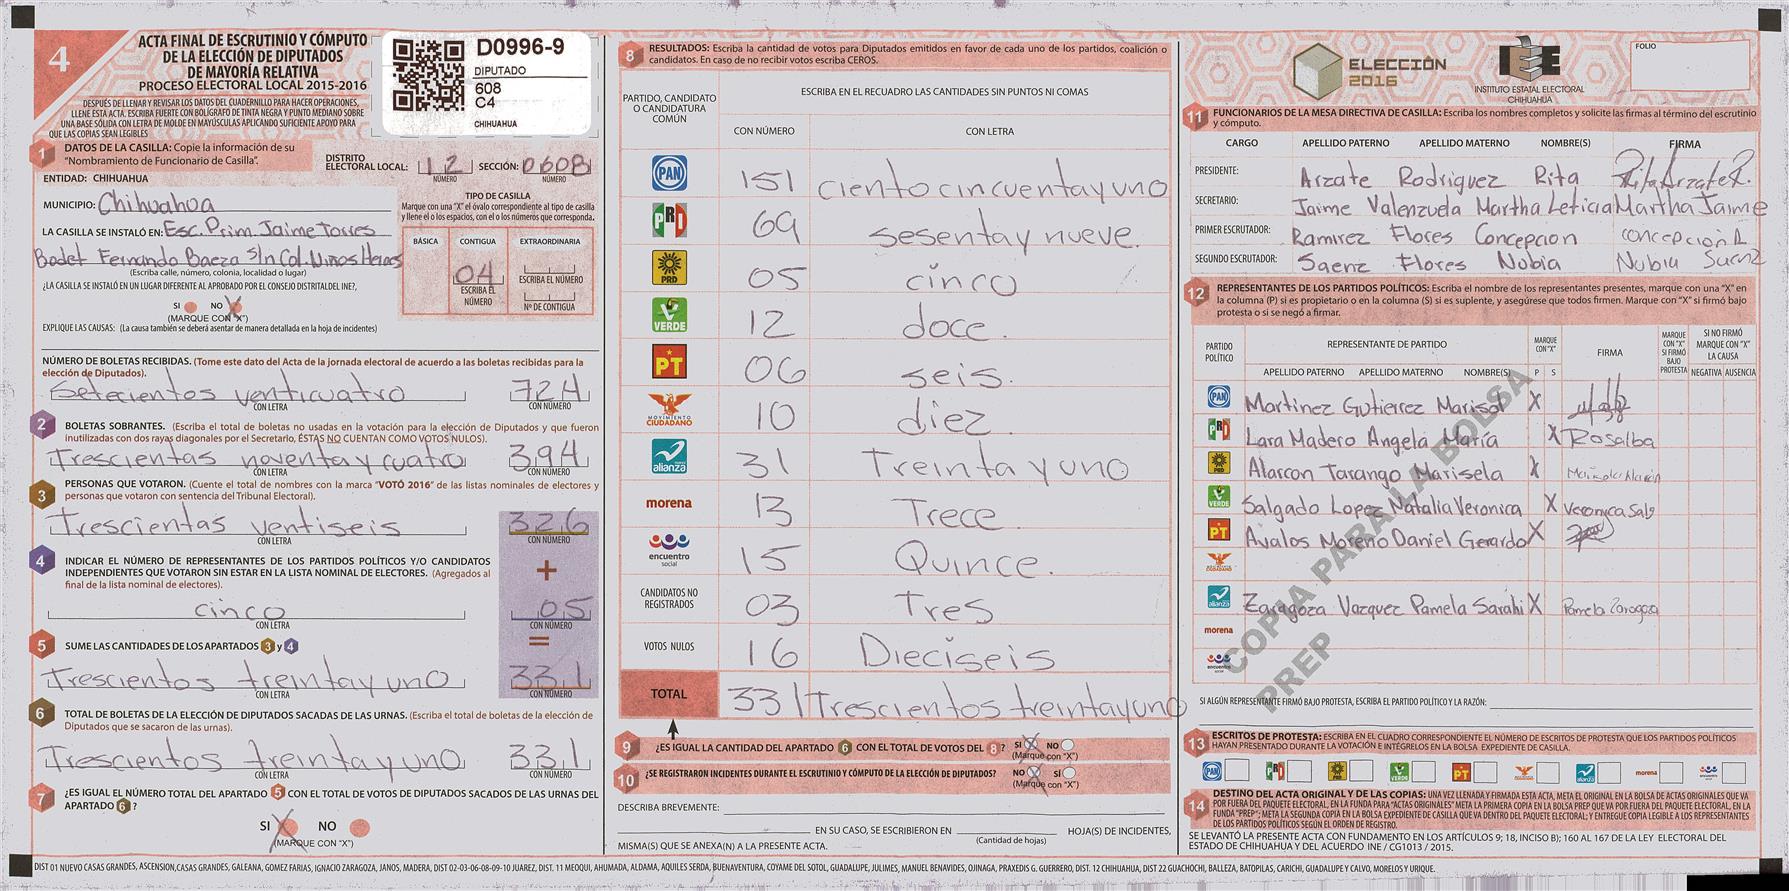 4
ACTA FINAL DE ESCRUTINIO Y CÓMPUTO
DE LA ELECCIÓN DE DIPUTADOS
DE MAYORÍA RELATIVA
PROCESO ELECTORAL LOCAL 2015-2016
DESPUÉS DE LLENAR Y REVISAR LOS DATOS DEL CUADERNILLO PARA HACER OPERACIONES,
LLENE ESTA ACTA. ESCRIBA FUERTE CON BOLÍGRAFO DE TINTA NEGRA Y PUNTO MEDIANO SOBRE
UNA BASE SÓLIDA CON LETRA DE MOLDE EN MAYÚSCULAS APLICANDO SUFICIENTE APOYO PARA
QUE LAS COPIAS SEAN LEGIBLES
D0996-9
DIPUTADO
608
C4
CHIHUAHUA
1 DATOS DE LA CASILLA: Copie la información de su
"Nombramiento de Funcionario de Casilla".
DISTRITO ELECTORAL LOCAL: 12 NÚMERO SECCIÓN: 0608 NÚMERO
ENTIDAD: CHIHUAHUA
MUNICIPIO: Chihuahua
LA CASILLA SE INSTALÓ EN: Esc. Prim. Jaime Torres
Bodet Fernando Baeza S/n Col. Niños Heroes
(Escriba calle, número, colonia, localidad o lugar)
¿LA CASILLA SE INSTALÓ EN UN LUGAR DIFERENTE AL APROBADO POR EL CONSEJO DISTRITAL DEL INE?,
SI NO X
(MARQUE CON "X")
EXPLIQUE LAS CAUSAS: (La causa también se deberá asentar de manera detallada en la hoja de incidentes)
TIPO DE CASILLA
Marque con una "X" el óvalo correspondiente al tipo de casilla
y llene el o los espacios, con el o los números que corresponda.
BÁSICA CONTIGUA EXTRAORDINARIA
04
ESCRIBA EL NÚMERO
ESCRIBA EL NÚMERO
Nº DE CONTIGUA
NÚMERO DE BOLETAS RECIBIDAS. (Tome este dato del Acta de la jornada electoral de acuerdo a las boletas recibidas para la
elección de Diputados).
Setecientos venticuatro 724
CON LETRA CON NÚMERO
2 BOLETAS SOBRANTES. (Escriba el total de boletas no usadas en la votación para la elección de Diputados y que fueron
inutilizadas con dos rayas diagonales por el Secretario, ÉSTAS NO CUENTAN COMO VOTOS NULOS).
Trescientas noventa y cuatro 394
CON LETRA CON NÚMERO
3 PERSONAS QUE VOTARON. (Cuente el total de nombres con la marca "VOTÓ 2016" de las listas nominales de electores y
personas que votaron con sentencia del Tribunal Electoral).
Trescientas ventiseis 326
CON LETRA CON NÚMERO
4 INDICAR EL NÚMERO DE REPRESENTANTES DE LOS PARTIDOS POLÍTICOS Y/O CANDIDATOS
INDEPENDIENTES QUE VOTARON SIN ESTAR EN LA LISTA NOMINAL DE ELECTORES. (Agregados al
final de la lista nominal de electores).
+
cinco 05
CON LETRA CON NÚMERO
5 SUME LAS CANTIDADES DE LOS APARTADOS 3 y 4
=
Trescientos treinta y uno 331
CON LETRA CON NÚMERO
6 TOTAL DE BOLETAS DE LA ELECCIÓN DE DIPUTADOS SACADAS DE LAS URNAS. (Escriba el total de boletas de la elección de
Diputados que se sacaron de las urnas).
Trescientos treinta y uno 331
CON LETRA CON NÚMERO
7 ¿ES IGUAL EL NÚMERO TOTAL DEL APARTADO 5 CON EL TOTAL DE VOTOS DE DIPUTADOS SACADOS DE LAS URNAS DEL
APARTADO 6?
SI X NO
(MARQUE CON "X")
8 RESULTADOS: Escriba la cantidad de votos para Diputados emitidos en favor de cada uno de los partidos, coalición o
candidatos. En caso de no recibir votos escriba CEROS.
PARTIDO, CANDIDATO
O CANDIDATURA
COMÚN
ESCRIBA EN EL RECUADRO LAS CANTIDADES SIN PUNTOS NI COMAS
CON NÚMERO CON LETRA
PAN 151 ciento cincuenta y uno
PRI 69 sesenta y nueve.
PRD 05 cinco
VERDE 12 doce.
PT 06 seis.
MOVIMIENTO CIUDADANO 10 diez
alianza 31 Treinta y uno
morena 13 Trece.
encuentro social 15 Quince.
CANDIDATOS NO REGISTRADOS 03 Tres
VOTOS NULOS 16 Dieciseis
TOTAL 331 Trescientos treinta y uno
9 ¿ES IGUAL LA CANTIDAD DEL APARTADO 6 CON EL TOTAL DE VOTOS DEL 8? SI X NO
(Marque con "X")
10 ¿SE REGISTRARON INCIDENTES DURANTE EL ESCRUTINIO Y CÓMPUTO DE LA ELECCIÓN DE DIPUTADOS? NO X SI
(Marque con "X")
DESCRIBA BREVEMENTE:
EN SU CASO, SE ESCRIBIERON EN HOJA(S) DE INCIDENTES,
(Cantidad de hojas)
MISMA(S) QUE SE ANEXA(N) A LA PRESENTE ACTA.
ELECCIÓN
2016
IEE
INSTITUTO ESTATAL ELECTORAL
CHIHUAHUA
FOLIO
11 FUNCIONARIOS DE LA MESA DIRECTIVA DE CASILLA: Escriba los nombres completos y solicite las firmas al término del escrutinio
y cómputo.
CARGO APELLIDO PATERNO APELLIDO MATERNO NOMBRE(S) FIRMA
PRESIDENTE: Arzate Rodriguez Rita Rita Arzate R.
SECRETARIO: Jaime Valenzuela Martha Leticia Martha Jaime
PRIMER ESCRUTADOR: Ramirez Flores Concepcion concepción R
SEGUNDO ESCRUTADOR: Saenz Flores Nubia Nubia Saenz
12 REPRESENTANTES DE LOS PARTIDOS POLÍTICOS: Escriba el nombre de los representantes presentes, marque con una "X" en
la columna (P) si es propietario o en la columna (S) si es suplente, y asegúrese que todos firmen. Marque con "X" si firmó bajo
protesta o si se negó a firmar.
PARTIDO POLÍTICO
REPRESENTANTE DE PARTIDO
MARQUE CON "X"
FIRMA
MARQUE CON "X" SI FIRMÓ BAJO PROTESTA
SI NO FIRMÓ MARQUE CON "X" LA CAUSA
APELLIDO PATERNO APELLIDO MATERNO NOMBRE(S) P S NEGATIVA AUSENCIA
PAN Martinez Gutierrez Marisol X
PRI Lara Madero Angela Maria X Rosalba
PRD Alarcon Tarango Marisela X Marisela Alarcón
VERDE Salgado Lopez Natalia Veronica X Veronica Salg
PT Avalos Moreno Daniel Gerardo X
MOVIMIENTO CIUDADANO
alianza Zaragoza Vazquez Pamela Sarahi X Pamela Zaragoza
morena
encuentro social
COPIA PARA LA BOLSA
PREP
SI ALGÚN REPRESENTANTE FIRMÓ BAJO PROTESTA, ESCRIBA EL PARTIDO POLÍTICO Y LA RAZÓN:
13 ESCRITOS DE PROTESTA: ESCRIBA EN EL CUADRO CORRESPONDIENTE EL NÚMERO DE ESCRITOS DE PROTESTA QUE LOS PARTIDOS POLÍTICOS
HAYAN PRESENTADO DURANTE LA VOTACIÓN E INTÉGRELOS EN LA BOLSA EXPEDIENTE DE CASILLA.
PAN PRI PRD VERDE PT alianza morena
14 DESTINO DEL ACTA ORIGINAL Y DE LAS COPIAS: UNA VEZ LLENADA Y FIRMADA ESTA ACTA, META EL ORIGINAL EN LA BOLSA DE ACTAS ORIGINALES QUE VA
POR FUERA DEL PAQUETE ELECTORAL, EN LA FUNDA PARA "ACTAS ORIGINALES" META LA PRIMERA COPIA EN LA BOLSA PREP QUE VA POR FUERA DEL PAQUETE ELECTORAL, EN LA
FUNDA "PREP"; META LA SEGUNDA COPIA EN LA BOLSA EXPEDIENTE DE CASILLA QUE VA DENTRO DEL PAQUETE ELECTORAL; Y ENTREGUE COPIA LEGIBLE A LOS REPRESENTANTES
DE LOS PARTIDOS POLÍTICOS SEGÚN EL ORDEN DE REGISTRO.
SE LEVANTÓ LA PRESENTE ACTA CON FUNDAMENTO EN LOS ARTÍCULOS 9; 18, INCISO B); 160 AL 167 DE LA LEY ELECTORAL DEL
ESTADO DE CHIHUAHUA Y DEL ACUERDO INE / CG1013 / 2015.
DIST 01 NUEVO CASAS GRANDES, ASCENSION,CASAS GRANDES, GALEANA, GOMEZ FARIAS, IGNACIO ZARAGOZA, JANOS, MADERA, DIST 02-03-06-08-09-10 JUAREZ, DIST. 11 MEOQUI, AHUMADA, ALDAMA, AQUILES SERDA, BUENAVENTURA, COYAME DEL SOTOL, GUADALUPE, JULIMES, MANUEL BENAVIDES, OJINAGA, PRAXEDIS G. GUERRERO, DIST. 12 CHIHUAHUA, DIST 22 GUACHOCHI, BALLEZA, BATOPILAS, CARICHI, GUADALUPE Y CALVO, MORELOS Y URIQUE.